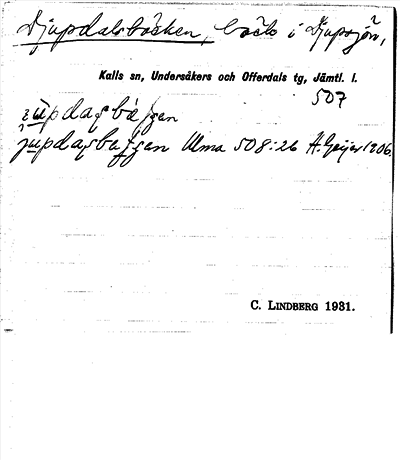 Djupdalsbäcken, bäck i Djupsjön,
Kalls sn, Undersåkers och Offerdals tg, Jämtl. l.
507
Ulma 508:26 H. Geijer 1906.
C. LINDBERG 1931.